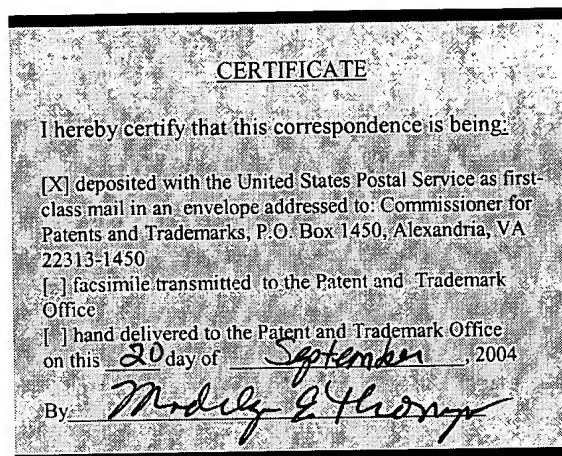 CERTIFICATE
I hereby certify that this correspondence is being:
[X] deposited with the United States Postal Service as first-
class mail in an envelope addressed to: Commissioner for
Patents and Trademarks, P.O. Box 1450, Alexandria, VA
22313-1450
[ ] facsimile transmitted to the Patent and Trademark
Office
[ ] hand delivered to the Patent and Trademark Office
on this 20 day of September, 2004
By